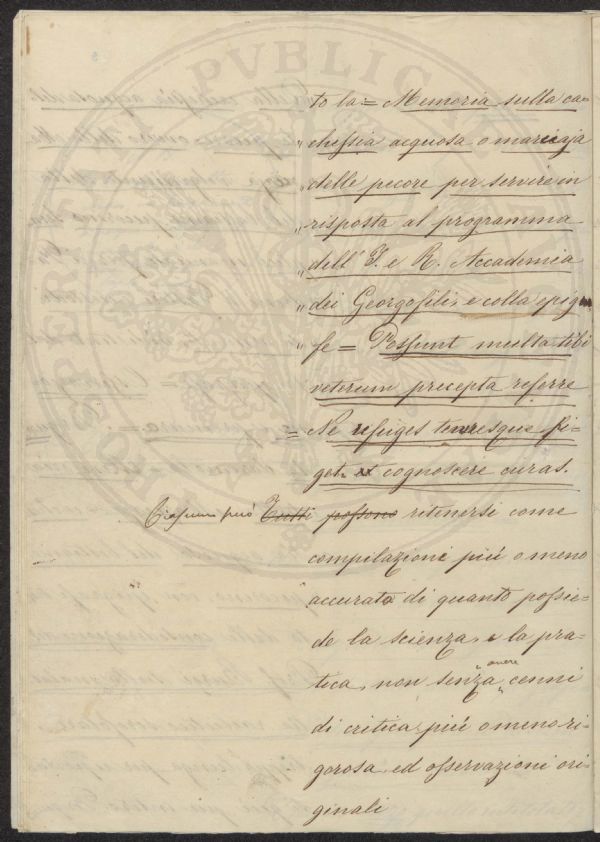 to la = Memoria sulla ca-
" chessia acquosa o marciaja
" delle pecore per servire in
" risposta al programma
" dell' I. e R. Accademia
" dei Georgofili, e colla epigra
" fe = Possunt multa tibi
veterum precepta referre
= Ne refuges tenuesque pi-
get cognoscere curas.
Ciascun può Tutti possono ritenersi come
compilazione più o meno
accurata di quanto possie-
de la scienza, e la pra-
tica, non senza avere cenni
di critica più o meno ri-
gorosa, ed osservazioni ori-
ginali